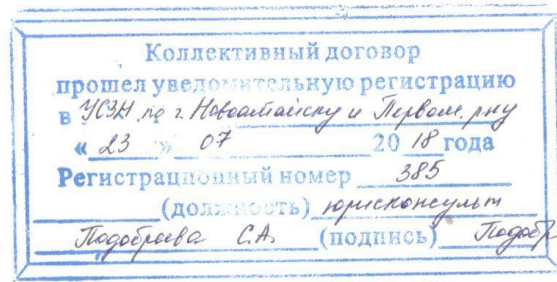 Коллективный договор
прошел уведомительную регистрацию
в УСЗН по г. Новоалтайску и Первом. р-ну
« 23 » 07 20 18 года
Регистрационный номер 385
(должность) юрисконсульт
Подобреева С.А. (подпись) Подобр